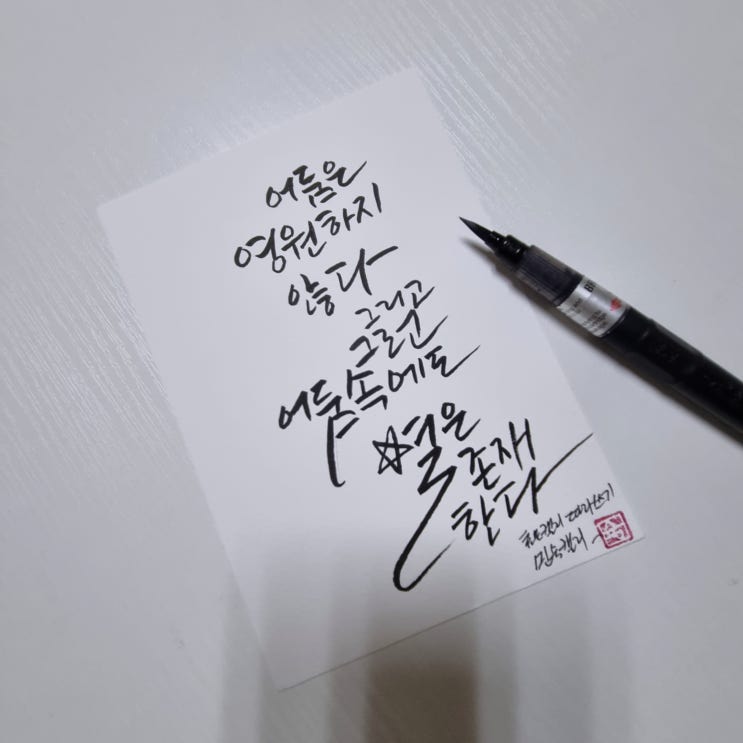 어둠은
영원하지
않다
그리고
그리고
어둠속에도
별은
존재
한다
따라쓰기